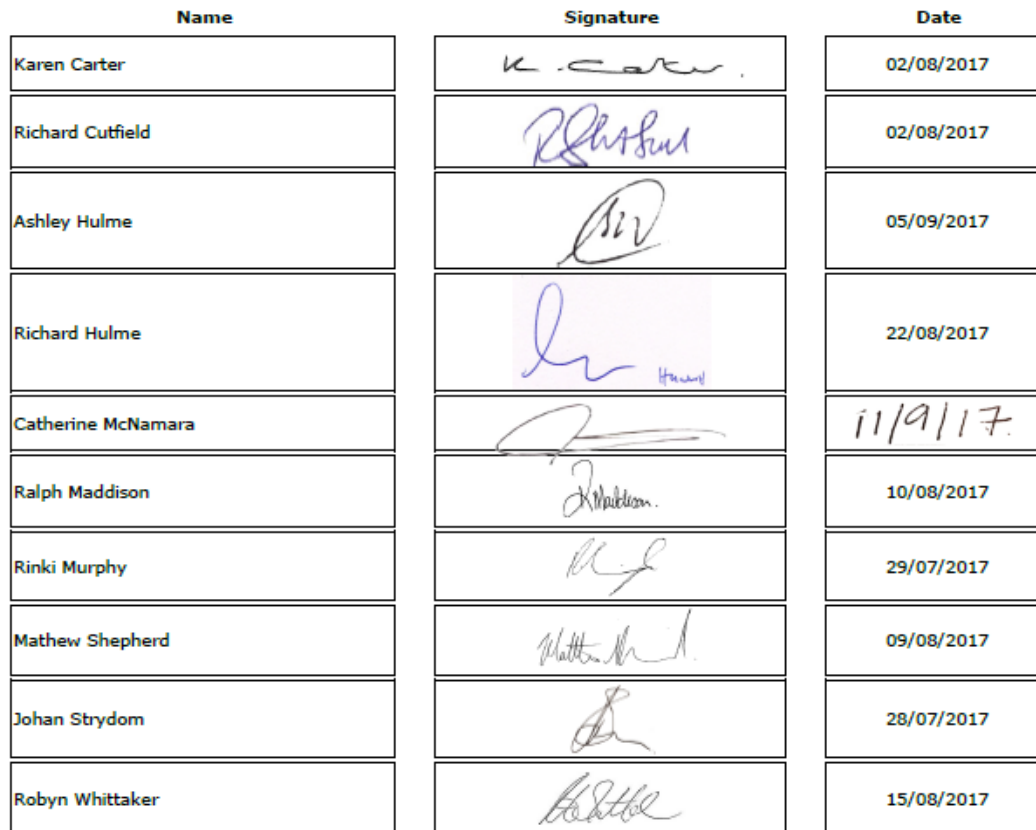 Name Signature Date
Karen Carter K. Carter. 02/08/2017
Richard Cutfield 02/08/2017
Ashley Hulme 05/09/2017
Richard Hulme 22/08/2017
Catherine McNamara 11/9/17.
Ralph Maddison RMaddison. 10/08/2017
Rinki Murphy 29/07/2017
Mathew Shepherd 09/08/2017
Johan Strydom 28/07/2017
Robyn Whittaker 15/08/2017